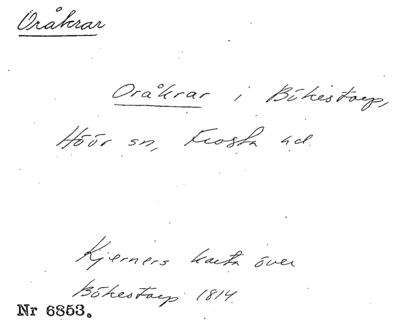 Oråkrar
Oråkrar i Bökestorp,
Höör sn, Frosta hd.
Kjerners karta över
Bökestorp 1814.
Nr 6853.